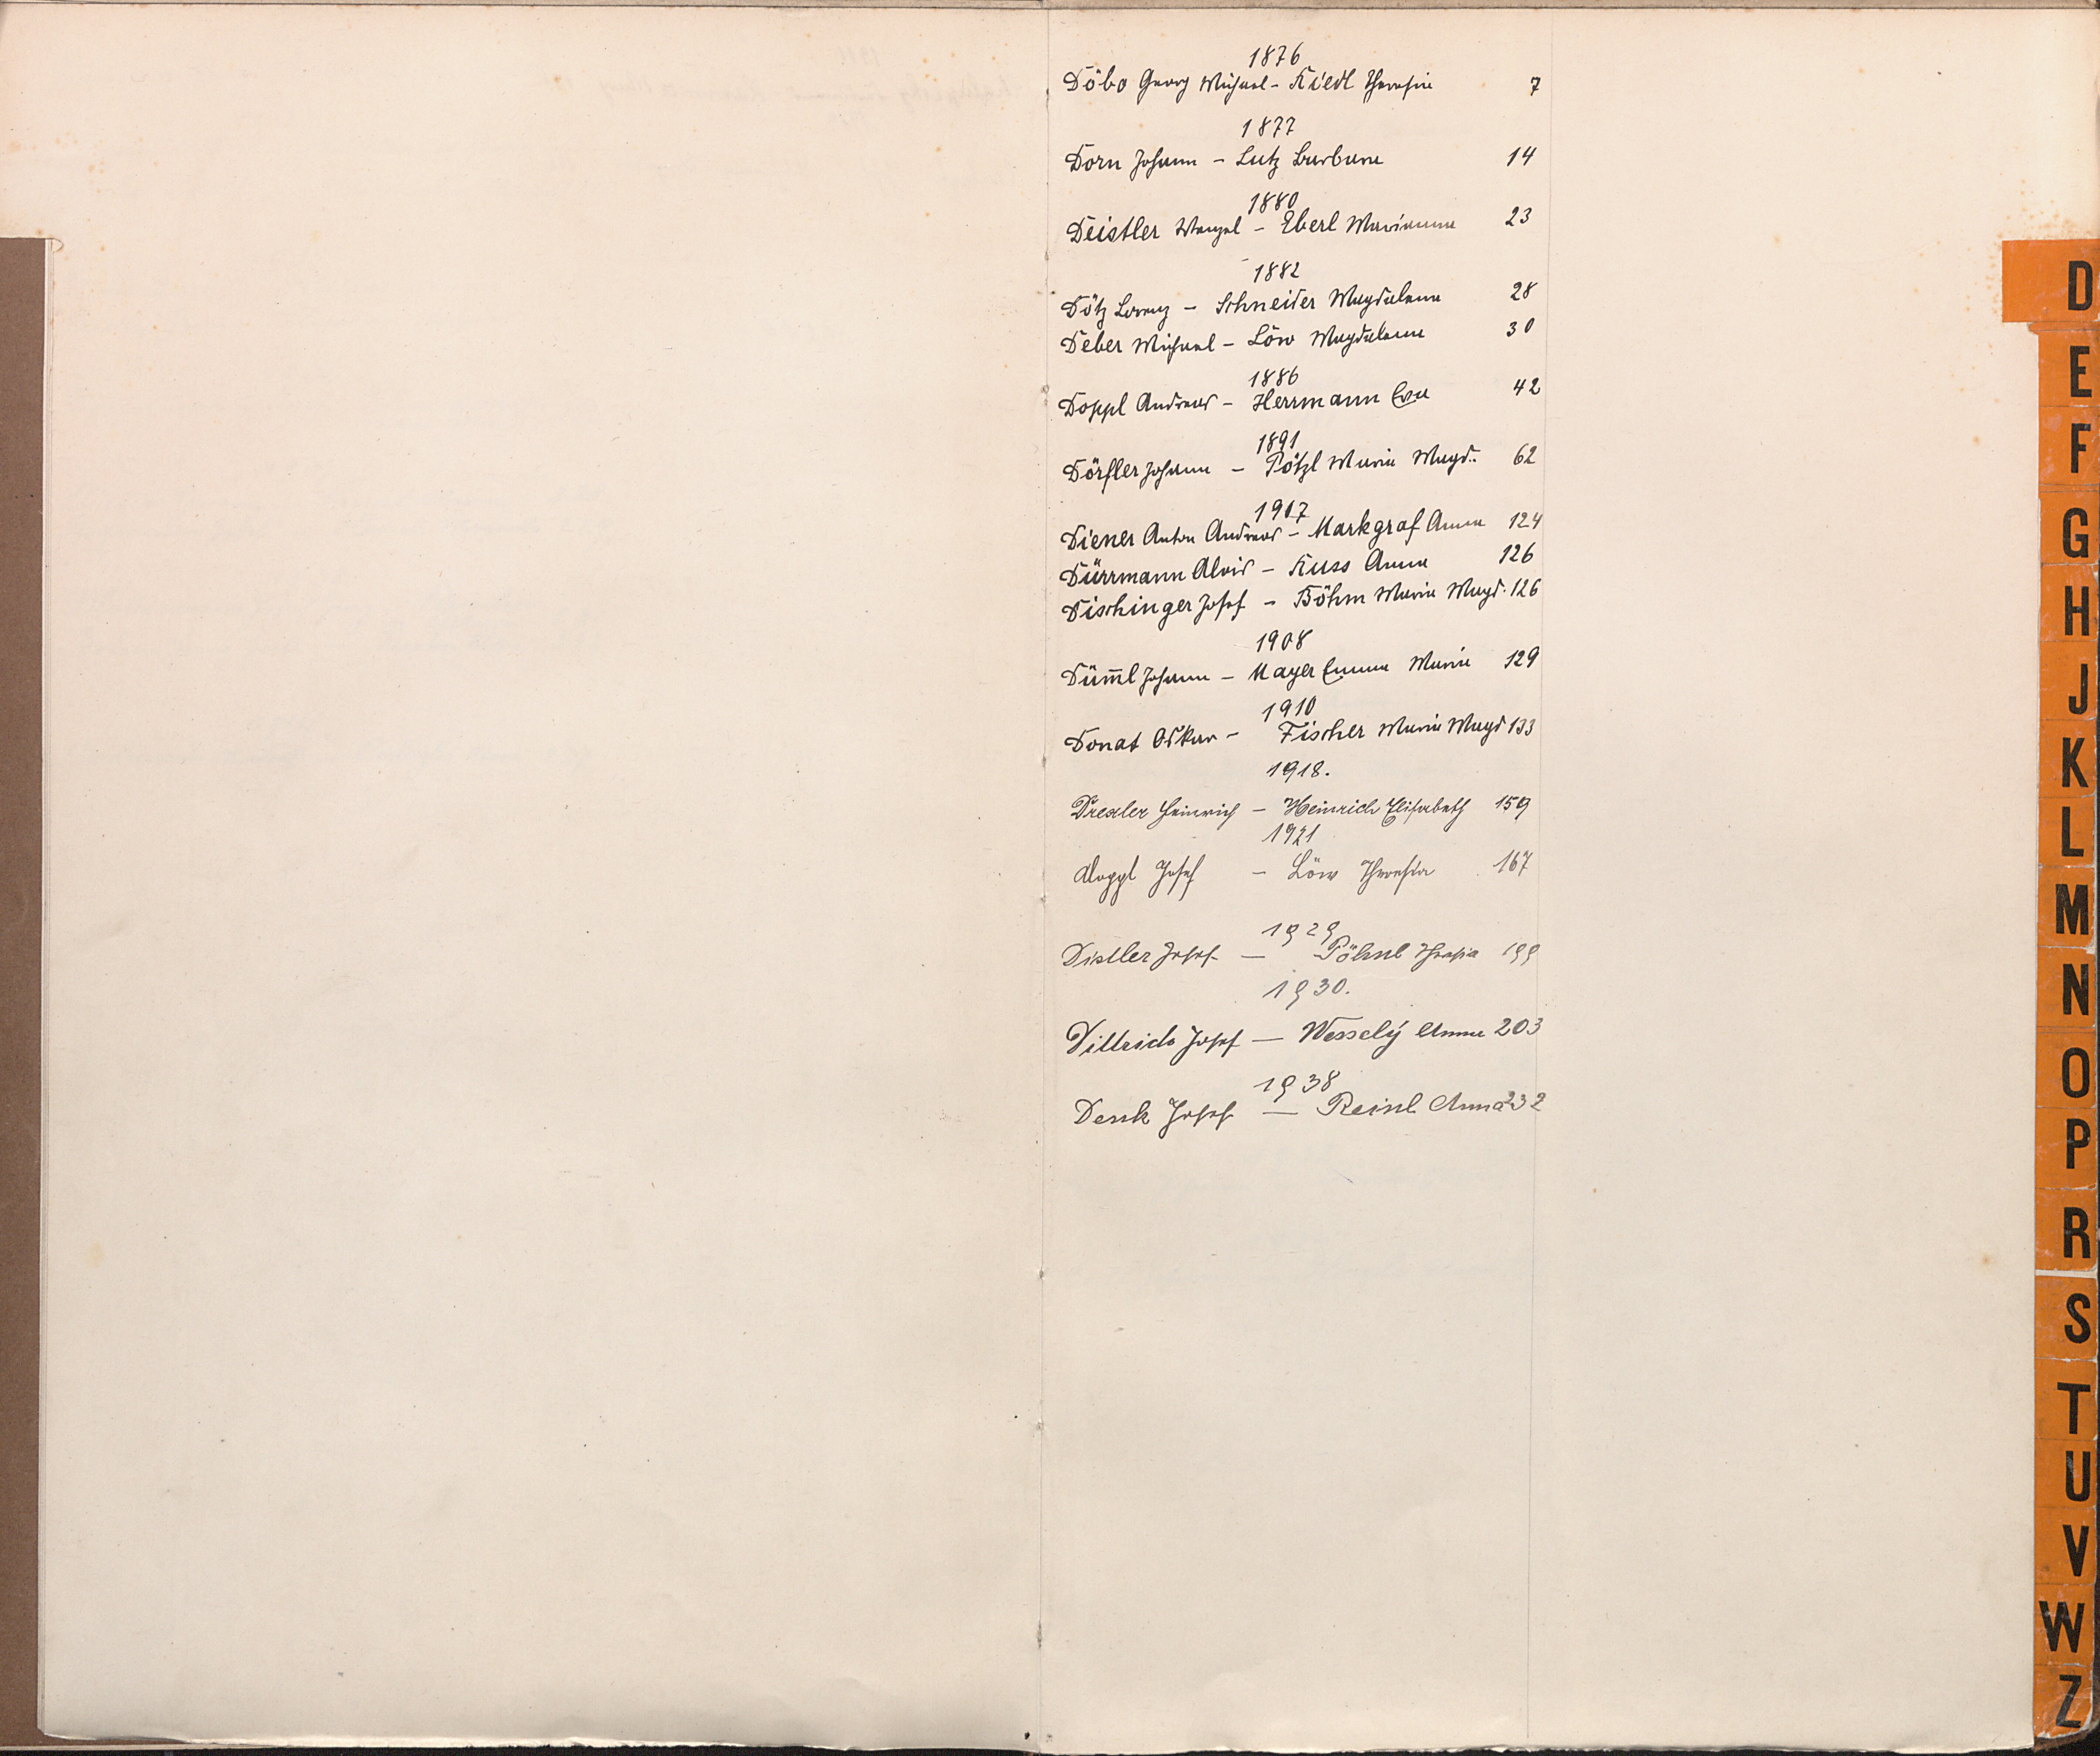 1876
Döbo Georg Michael - Riedl Theresia 7
1877
Dorn Johann - Lutz Barbara 14
1880
Deistler Wenzel - Eberl Marianna 23
1882
Dötz Lorenz - Schneider Magdalena 28
Deber Michael - Löw Magdalena 30
1886
Doppl Andreas - Herrmann Eva 42
1891
Dörfler Johann - Pötzl Maria Magd. 62
1907
Diener Anton Andreas - Markgraf Anna 124
Dürrmann Alois - Kuss Anna 126
Dischinger Josef - Böhm Maria Magd. 126
1908
Düm̄l Johann - Mayer Emma Maria 129
1910
Donat Oskar - Fischer Maria Magd 133
1918.
Drexler Heinrich - Heinrich Elisabeth 159
1921
Doppl Josef - Löw Theresia 167
1929
Distler Josef — Pöhnl Theresia 199
1930.
Dittrich Josef — Wessely Anna 203
1938
Denk Josef — Reinl Anna 232
D
E
F
G
H
J
K
L
M
N
O
P
R
S
T
U
V
W
Z